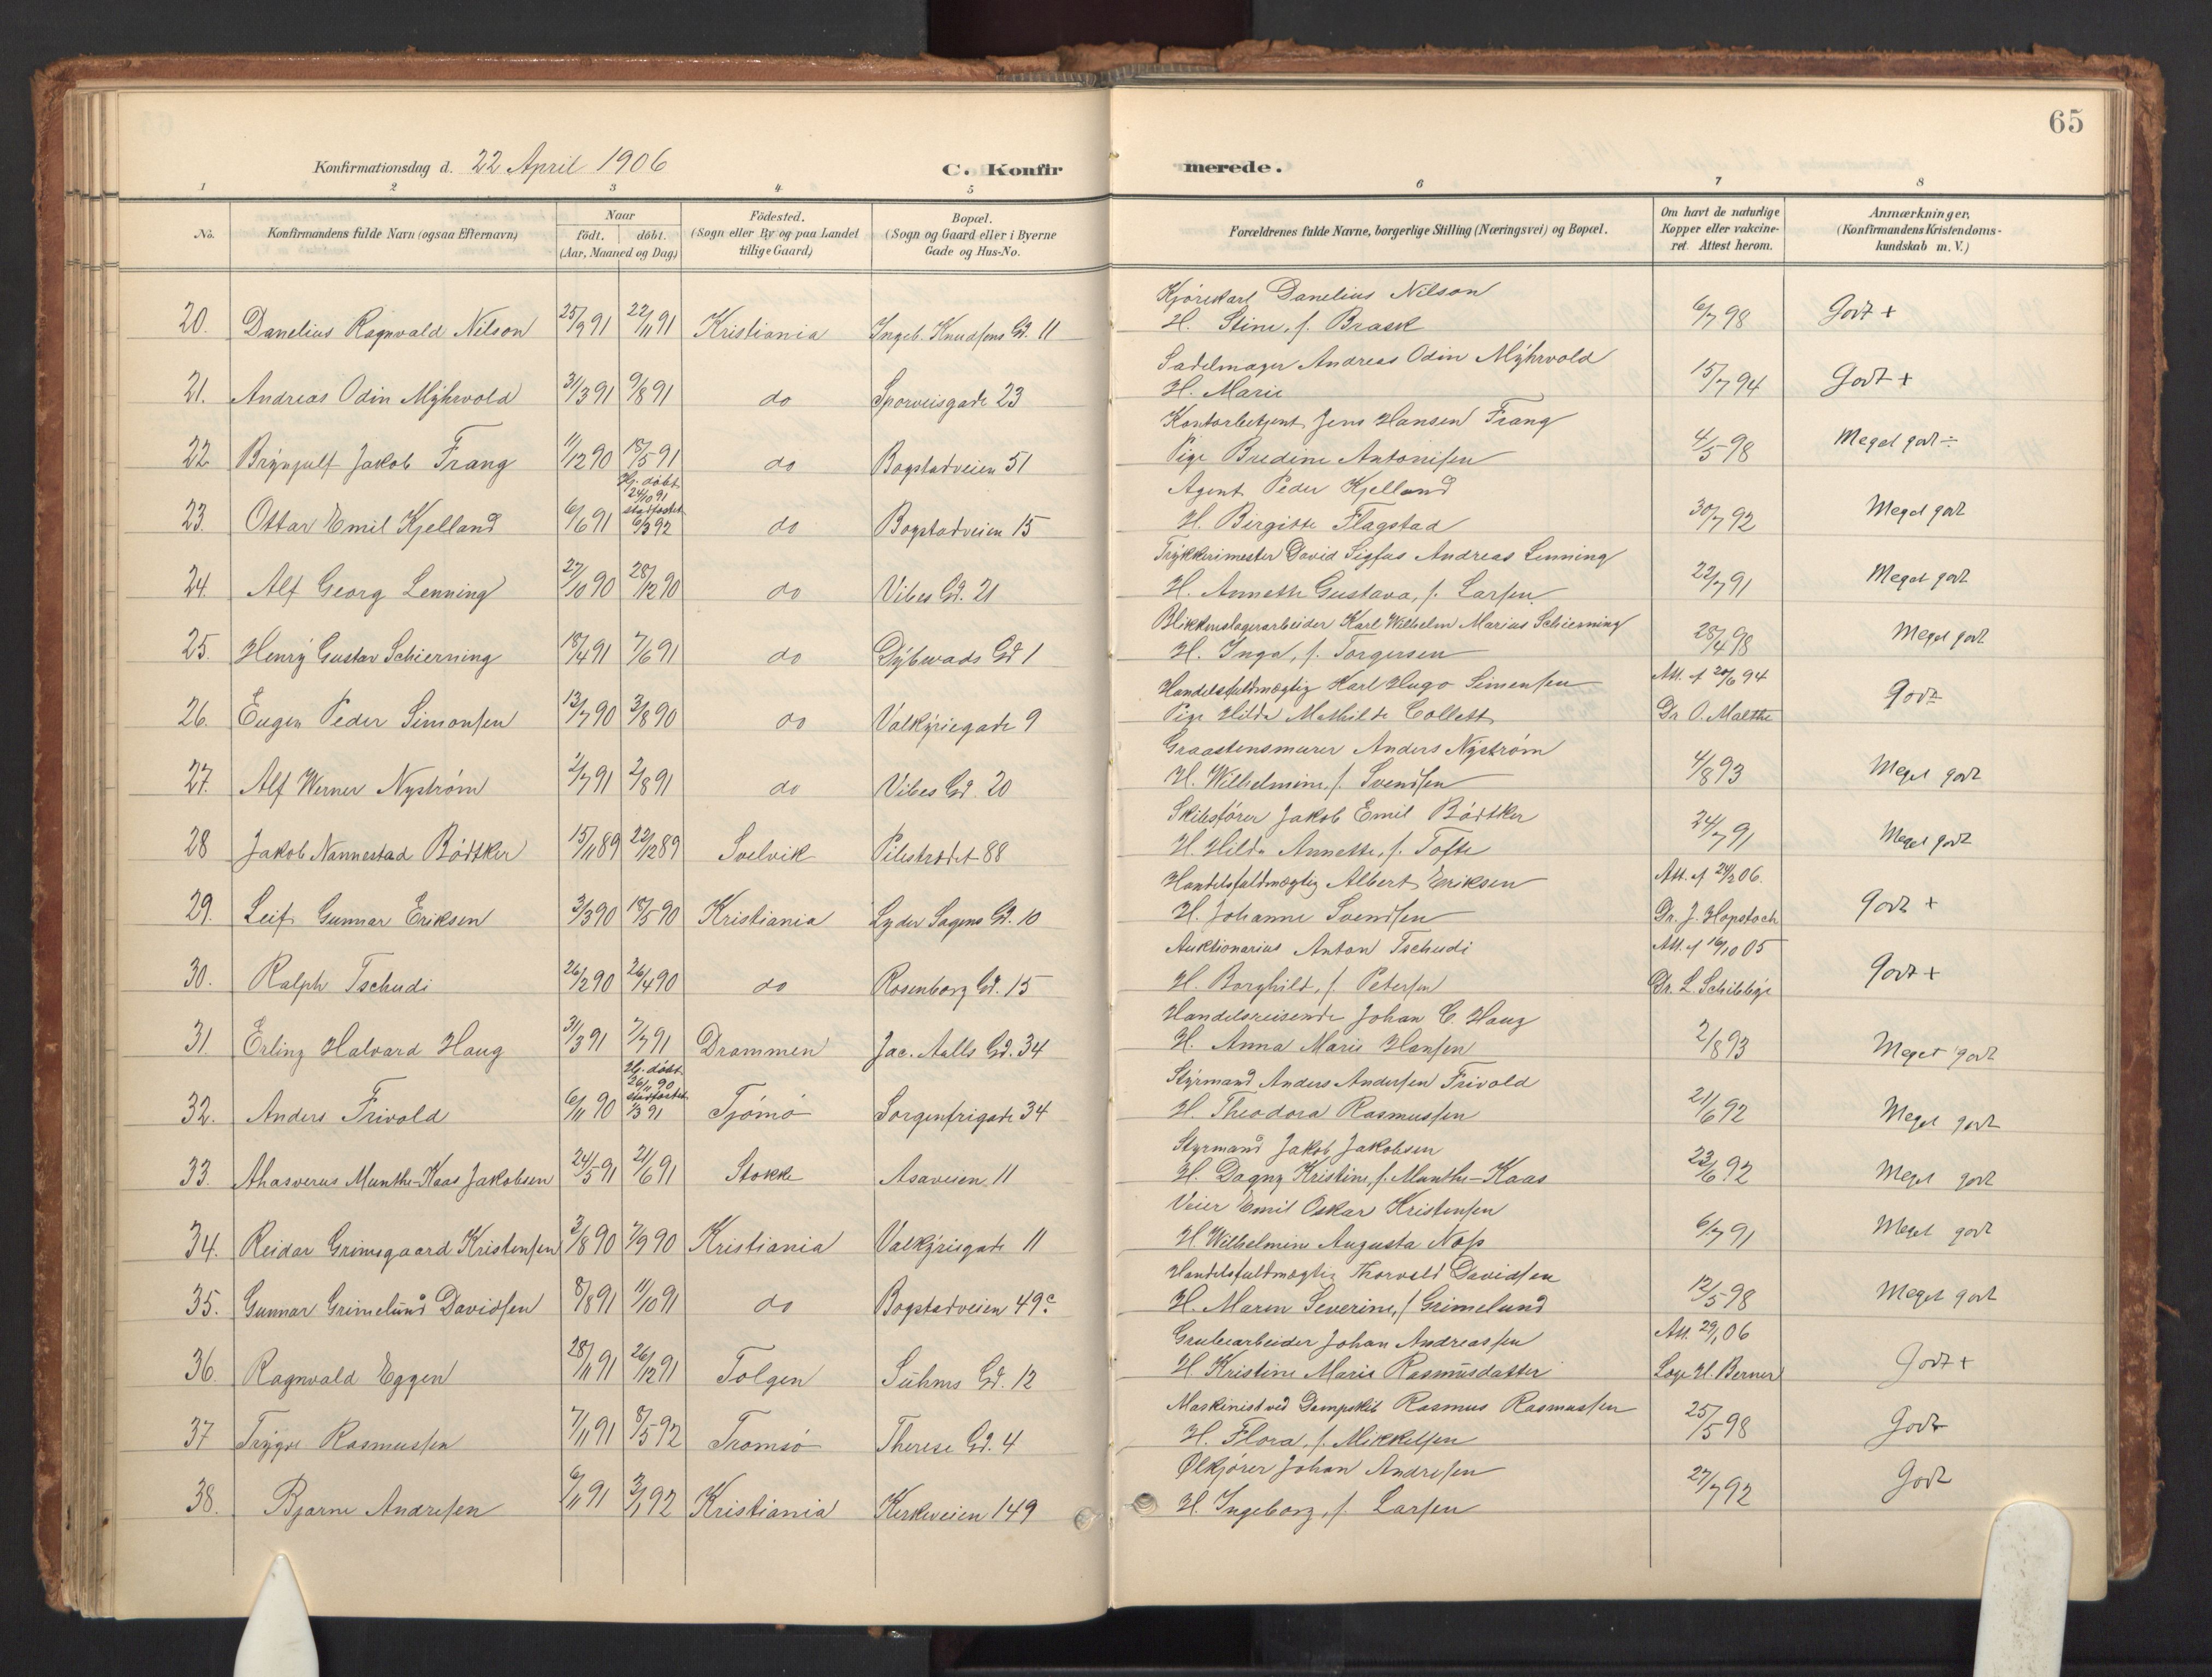 65
Konfirmationsdag d. 22 April 1906
C. Konfirmerede.
1 2 3 4 5 6 7 8
No.
Konfirmandens fulde Navn (ogsaa Efternavn)
Naar
födt. döbt.
(Aar, Maaned og Dag)
Födested.
(Sogn eller By og paa Landet
tillige Gaard)
Bopæl.
(Sogn og Gaard eller i Byerne
Gade og Hus-No.
Forældrenes fulde Navne, borgerlige Stilling (Næringsvei) og Bopæl.
Om havt de naturlige
Kopper eller vakcine-
ret. Attest herom.
Anmærkninger,
(Konfirmandens Kristendoms-
kundskab m. V.)
Kjørekarl Danelius Nilson
20. Danelius Ragnvald Nilson 25/9 91 22/11 91 Kristiania Ingeb. Knudsens Gd. 11 H. Stine, f. Brask 6/7 98 Godt +
Sadelmager Andreas Odin Mÿhrvold
21. Andreas Odin Mÿhrvold 31/3 91 9/8 91 do Sporveisgade 23 H. Marie 15/7 94 Godt +
Kontorbetjent Jens Hansen Frang
22 Brÿnjulf Jakob Frang 11/12 90 18/5 91 do Bogstadveien 51 Pige Bredine Antonisen 4/5 98 Meget godt ÷
Hj. døbt 24/10 91 stadfæstet
Agent Peder Kjelland
23. Ottar Emil Kjelland 6/6 91 6/3 92 do Bogstadveien 15 H. Birgitte Flagstad 30/7 92 Meget godt
Trÿkkerimester David Sigfus Andreas Lenning
24. Alf Georg Lenning 27/10 90 28/12 90 do Vibes Gd. 21 H. Annette Gustava, f. Larsen 22/7 91 Meget godt
Blikkenslagerarbeider Karl Wilhelm Marius Schierning
25. Henrÿ Gustav Schierning 18/4 91 7/6 91 do Dÿbwads Gd 1 H. Inga, f. Torgersen 28/4 98 Meget godt
Handelsfuldmægtig Karl Hugo Simensen Att. af 20/6 94
26. Eugen Peder Simonsen 13/7 90 3/8 90 do Valkÿriegade 9 Pige Hilda Mathilde Collett Dr O. Malthe Godt
Graastensmurer Anders Nÿstrøm
27. Alf Werner Nystrøm 2/7 91 2/8 91 do Vibes Gd. 20 H. Wilhelmine, f. Svendsen 4/8 93 Meget godt
Skibsfører Jakob Emil Bødtker
28 Jakob Nannestad Bødtker 15/11 89 22/12 89 Svelvik Pilestrædet 88 H. Hilda Annette, f. Tofte 24/7 91 Meget godt
Handelsfuldmægtig Albert Eriksen Att. af 24/2 06.
29. Leif Gunnar Eriksen 3/3 90 18/5 90 Kristiania Lyder Sagens Gd. 10 H. Johanne Svendsen Dr. J. Hopstock Godt +
Auktionarius Anton Tschudi Att. af 16/10 05
30. Ralph Tschudi 26/2 90 26/4 90 do Rosenborg Gd. 15 H. Borghild, f. Petersen Dr. L. Schibbÿe Godt +
Handelsreisende Johan C. Haug
31. Erling Halvard Haug 31/3 91 7/7 91 Drammen Jac. Aalls Gd. 34 H. Anna Marie Hansen 2/8 93 Meget godt
Hj. døbt 26/11 90 stadfæstet
Stÿrmand Anders Andersen Frivold
32. Anders Frivold 6/11 90 1/3 91 Tjømø Sorgenfrigade 34 H. Theodora Rasmussen 21/6 92 Meget godt
Styrmand Jakob Jakobsen
33. Ahasverus Munthe-Kaas Jakobsen 24/5 91 21/6 91 Stokke Asaveien 11 H. Dagny Kristine, f. Munthe-Kaas 23/6 92 Meget godt
Veier Emil Oskar Kristensen
34. Reidar Grimsgaard Kristensen 3/8 90 7/9 90 Kristiania Valkÿriegade 11 H. Wilhelmine Augusta Næss 6/7 91 Meget godt
Handelsfuldmægtig Thorvald Davidsen
35. Gunnar Grimelund Davidsen 8/8 91 11/10 91 do Bogstadveien 49c H. Maren Severine, f. Grimelund 12/5 98 Meget godt
Grubearbeider Johan Andreassen Att. 29/1 06
36. Ragnvald Eggen 28/11 91 26/12 91 Tolgen Suhms Gd. 12 H. Kristine Marie Rasmusdatter Læge H. Berner Godt +
Maskinist ved Dampskib Rasmus Rasmussen
37 Trÿgve Rasmussen 7/11 91 8/5 92 Tromsø Therese Gd. 4 H. Flora, f. Mikkelsen 25/5 98 Godt
Ølkjører Johan Andresen
38. Bjarne Andresen 6/11 91 3/1 92 Kristiania Kirkeveien 149 H. Ingeborg, f. Larsen 27/7 92 Godt